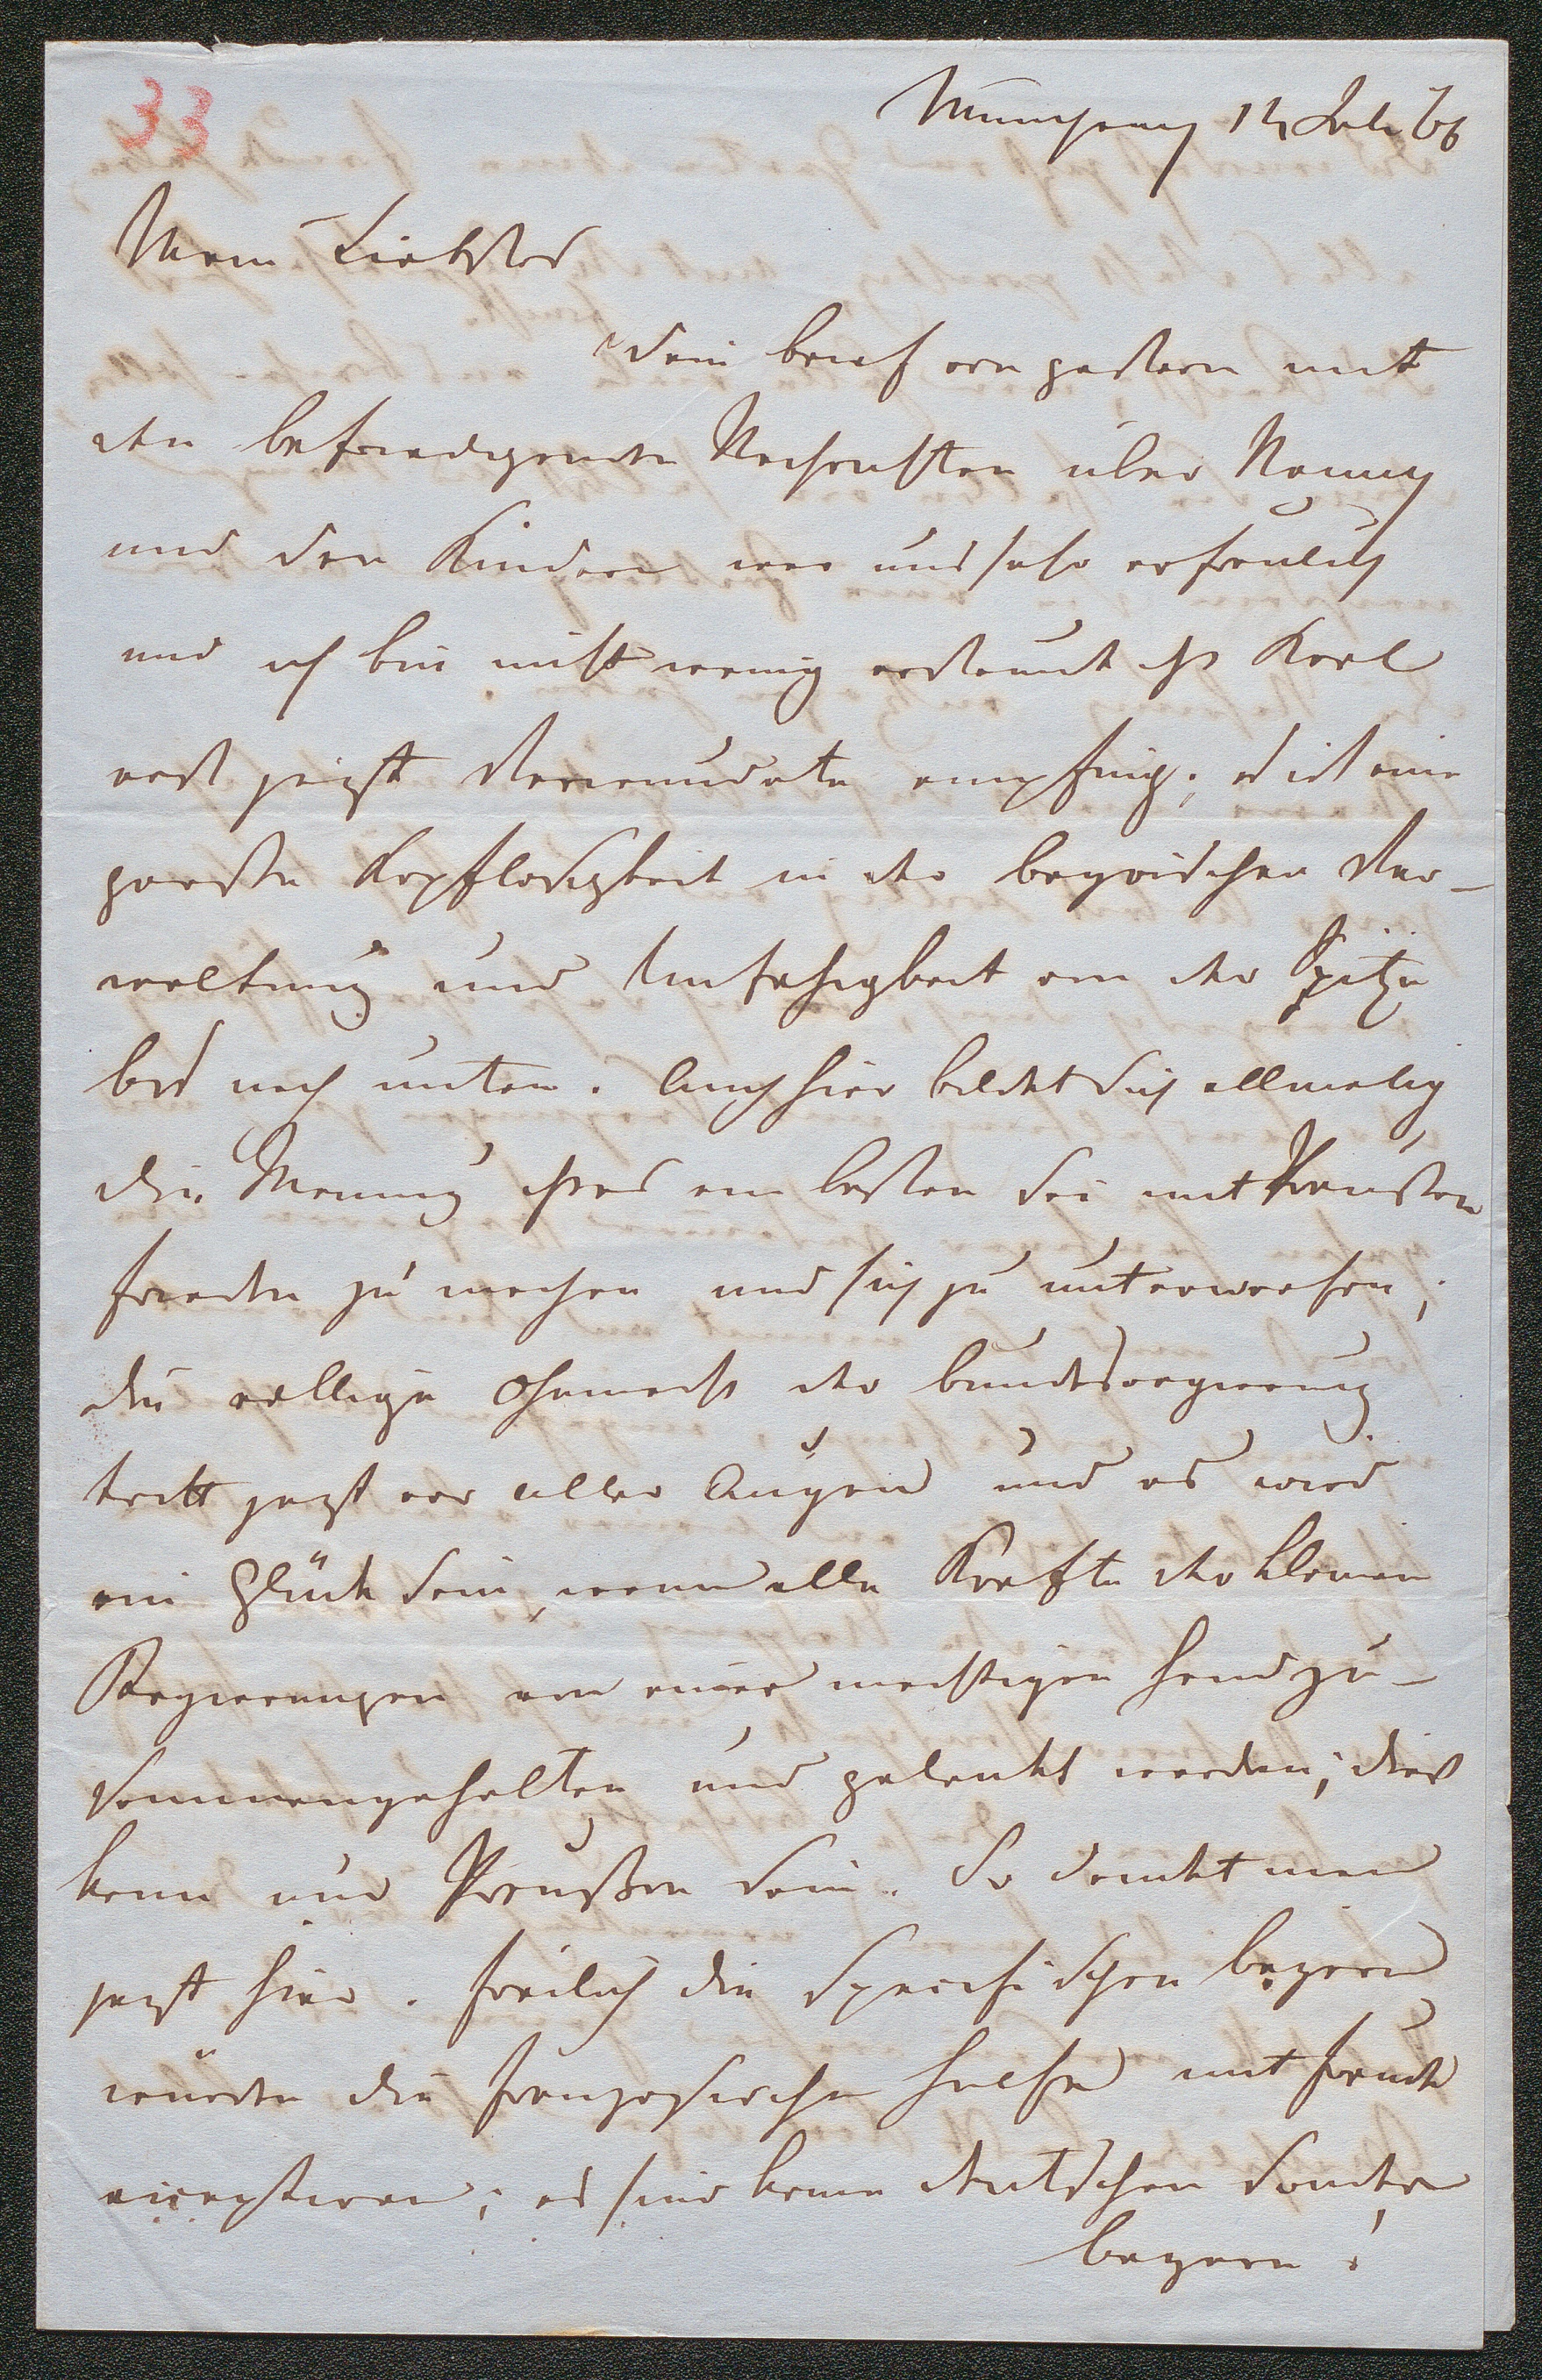 33
14 Juli 66
Mein Liebster
Dein Brief von gestern mit
den befriedigenden Nachrichten über Nanny
und den Kindern war uns sehr erfreulich
und ich bin nicht wenig erstaunt daß Karl
erst jetzt Verwundete empfing; es ist eine
große Kopflosigkeit in der bayrischen Ver-
waltung und Unfähigkeit von der Spitze
bis nach unten. Auch hier bildet sich allmälig
die Meinung daß es am besten sei mit Preußen
Frieden zu machen und sich zu unterwerfen;
die völlige Ohnmacht der Bundesregierung
tritt jetzt vor aller Augen und es wird
ein Glück sein, wenn alle Kräfte der kleinen
Regierungen von einer mächtigen Hand zu-
sammengehalten und gelenkt werden; dies
kann nur Preußen sein. So denkt man
jetzt hier. Freilich die specifischen Bayern
würden die französische Hülfe mit Freude
acceptiren; es sind keine Deutschen sondern
Bayern!